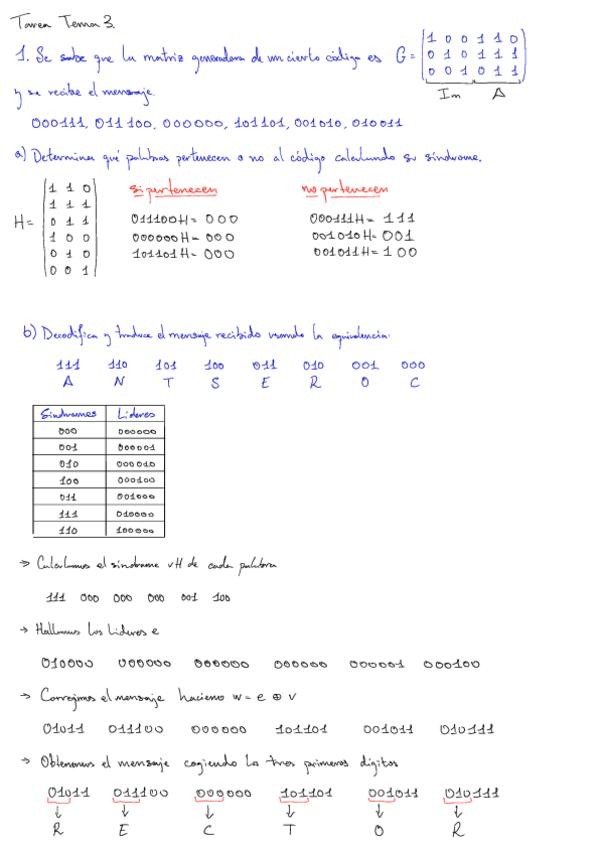 Tarea Tema 3.
1. Se sabe que la matriz generadora de un cierto código es G=
1 0 0 1 1 0
0 1 0 1 1 1
0 0 1 0 1 1
Im A
y se recibe el mensaje.
000111, 011100, 000000, 101101, 001010, 010011
a) Determina qué palabras pertenecen o no al código calculando su síndrome.
H=
1 1 0
1 1 1
0 1 1
1 0 0
0 1 0
0 0 1
si pertenecen
011100H= 000
000000H= 000
101101H= 000
no pertenecen
000111H= 111
001010H= 001
001011H= 100
b) Decodifica y traduce el mensaje recibido usando la equivalencia.
111 110 101 100 011 010 001 000
A N T S E R O C
Síndromes Líderes
000 000000
001 000001
010 000010
100 000100
011 001000
111 010000
110 100000
→ Calculamos el síndrome vH de cada palabra
111 000 000 000 001 100
→ Hallamos los Líderes e
010000 000000 000000 000000 000001 000100
→ Corregimos el mensaje haciendo w = e ⊕ v
01011 011100 000000 101101 001011 010111
→ Obtenemos el mensaje cogiendo los tres primeros dígitos
01011 011100 000000 101101 001011 010111
↓ ↓ ↓ ↓ ↓ ↓
R E C T O R